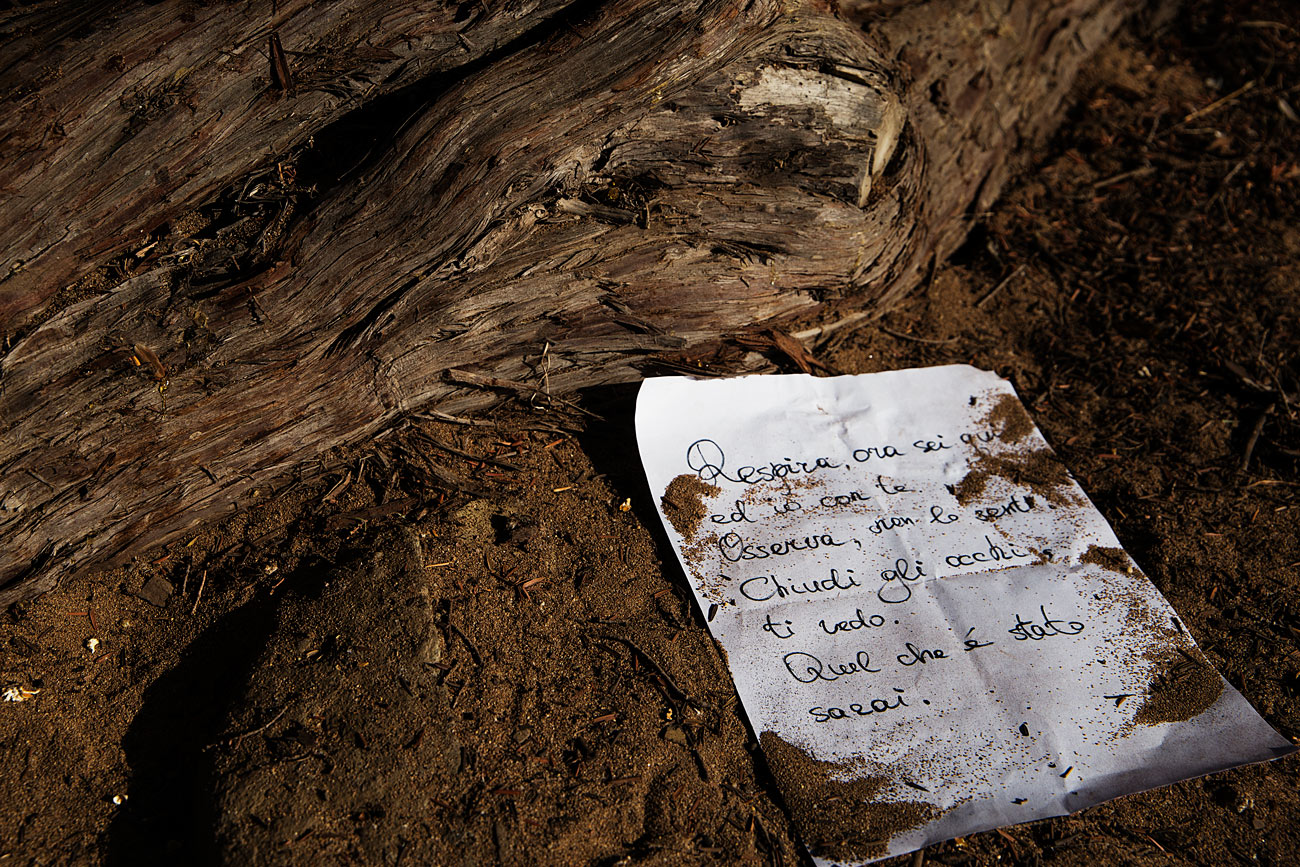 Respira, ora sei qui
ed io con te.
Osserva, non lo senti?
Chiudi gli occhi,
ti vedo.
Quel che é stato
sarai.